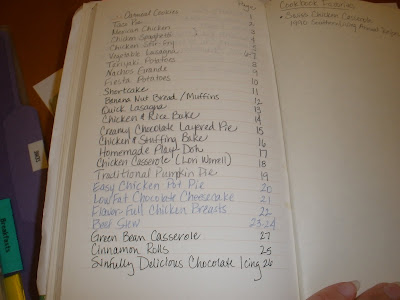 Page
Oatmeal Cookies 1
Taco Pie 2
Mexican Chicken 3
Chicken Spaghetti 4
Chicken Stir-Fry 5
Vegetable Lasagna 6-7
Teriyaki Potatoes 8
Nachos Grande 9
Fiesta Potatoes 10
Shortcake 11
Banana Nut Bread/Muffins 12
Quick Lasagna 13
Chicken & Rice Bake 14
Creamy Chocolate Layered Pie 15
Chicken & Stuffing Bake 16
Homemade Play-Doh 17
Chicken Casserole (Lori Worrell) 18
Traditional Pumpkin Pie 19
Easy Chicken Pot Pie 20
Low Fat Chocolate Cheesecake 21
Flavor-Full Chicken Breasts 22
Beef Stew 23-24
Green Bean Casserole 27
Cinnamon Rolls 25
Sinfully Delicious Chocolate Icing 26
Cookbook Favorites
Chicken Casserole
1990 Southern Living Annual
Breakfasts